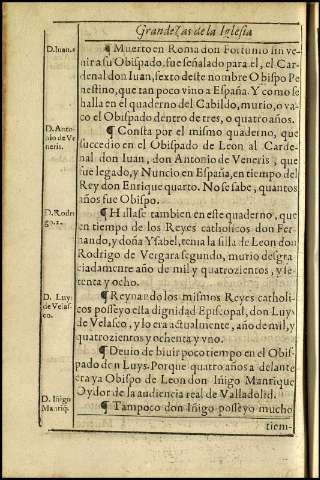 Grandezas de la Iglesia
D. Iuan. 6
¶ Muerto en Roma don Fortunio sin ve-
nir a su Obispado, fue señalado para el, el Car-
denal don Iuan, sexto deste nombre Obispo Pe
nestino, que tan poco vino a España. Y como se
halla en el quaderno del Cabildo, murio, o va-
co el Obispado dentro de tres, o quatro años.
D. Anto-
nio de Ve
neris.
¶ Consta por el mismo quaderno, que
succedio en el Obispado de Leon al Carde-
nal don Iuan, don Antonio de Veneris, que
fue legado, y Nuncio en España, en tiempo del
Rey don Enrique quarto. No se sabe, quantos
años fue Obispo.
D. Rodri
go. 2.
¶ Hallase tambien en este quaderno, que
en tiempo de los Reyes catholicos don Fer-
nando, y doña Ysabel, tenia la silla de Leon don
Rodrigo de Vergara segundo, murio desgra
ciadamente año de mil y quatrozientos, y se-
tenta y ocho.
D. Luys
de Velas
co.
¶ Reynando los mismos Reyes catholi-
cos posseyo essa dignidad Episcopal, don Luys
de Velasco, y lo era actualmente, año de mil, y
quatrozientos y ochenta y vno.
¶ Deuio de biuir poco tiempo en el Obis-
pado don Luys. Porque quatro años a delante
era ya Obispo de Leon don Iñigo Manrique
Oydor de la audiencia real de Valladolid.
D. Iñigo
Manriq.
¶ Tampoco don Iñigo posseyo mucho
tiem-